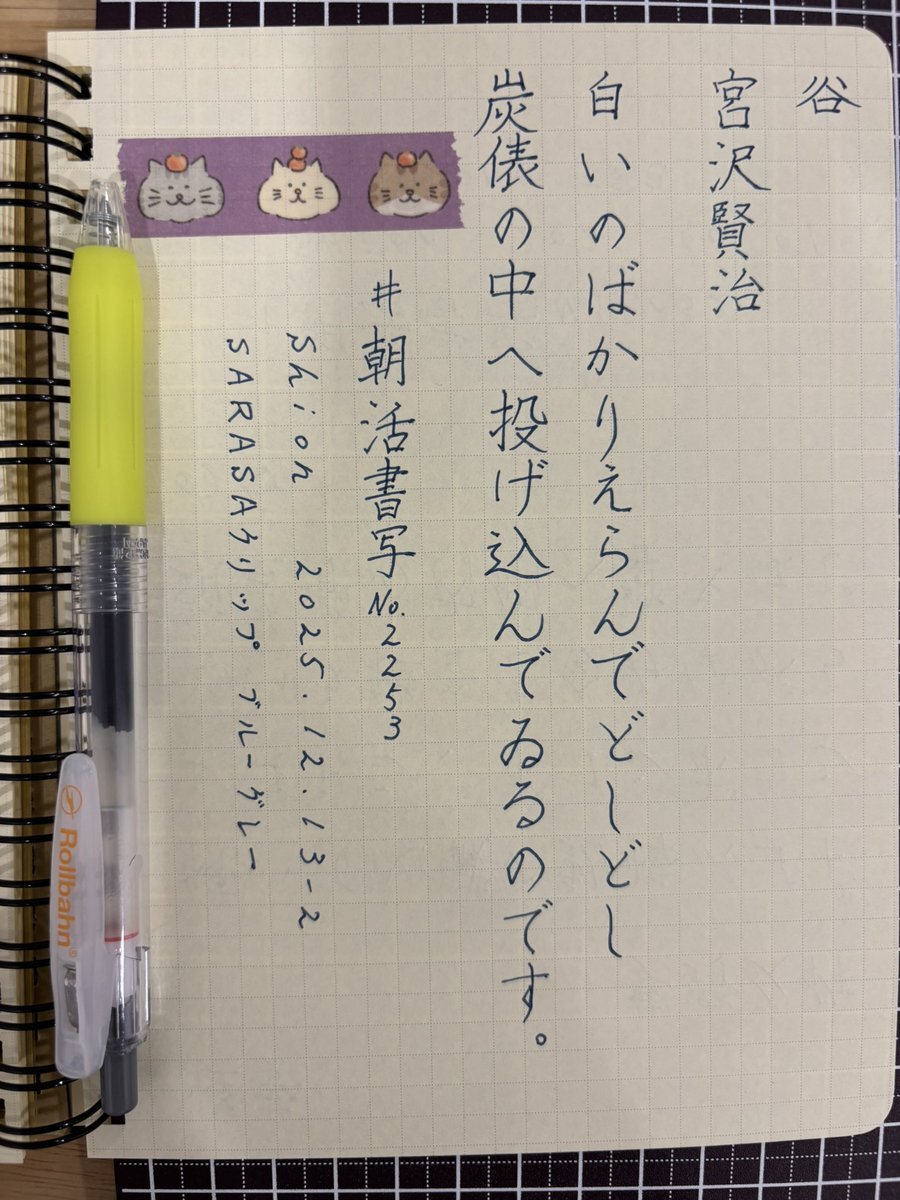 谷
宮沢賢治
白いのばかりえらんでどしどし
炭俵の中へ投げ込んでゐるのです。
#朝活書写No.2253
Shion 2025.12.13-2
SARASAクリップ ブルーグレー
Rollbahn®